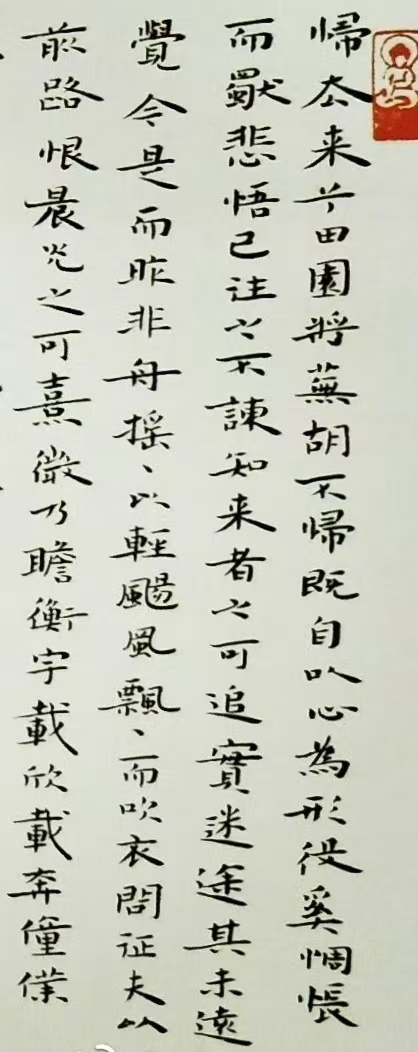 帰去来兮田園將蕪胡不帰既自以心為形役奚惆悵
而獨悲悟已往之不諫知来者之可追實迷途其未遠
覺今是而昨非舟搖、以輕颺風飄、而吹衣問征夫以
前路恨晨光之可熹微乃瞻衡宇載欣載奔僮僕